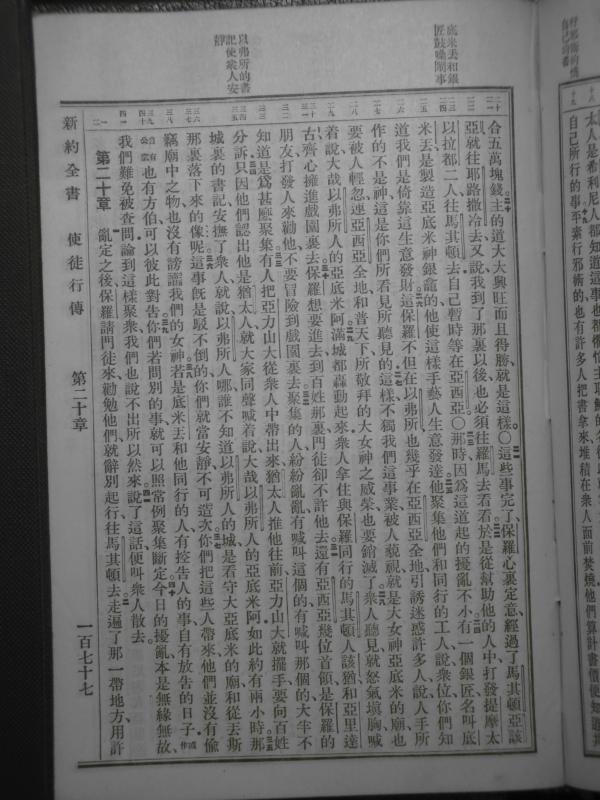 行邪術的焚
自己的書
十八
十九
太人是希利尼人都知道這事也都懼怕主耶穌的名
自己所行的事平素行邪術的也有許多人把書拿來堆積在衆人面前焚燒他們算計書價便知道
底米丟和銀
匠鼓噪鬧事
以弗所的書
記使衆人安
靜
合五萬塊錢主的道大大興旺而且得勝就是這樣〇這些事完了保羅心裏定意經過了馬其頓亞該
亞就往耶路撒冷去又說我到了那裏以後也必須往羅馬去看看於是從幫助他的人中打發提摩太
以拉都二人往馬其頓去自己暫時等在亞西亞〇那時因爲這道起的擾亂不小有一個銀匠名叫底
米丟是製造亞底米神銀龕的他使這樣手藝人生意發達他聚集他們和同行的工人說衆位你們知
道我們是倚靠這生意發財這保羅不但在以弗所也幾乎在亞西亞全地引誘迷惑許多人說人手所
作的不是神這是你們所看見所聽見的這樣不獨我們這事業被人藐視就是大女神亞底米的廟也
要被人輕忽連亞西亞全地和普天下所敬拜的大女神之威榮也要銷滅了衆人聽見就怒氣塡胸喊
着說大哉以弗所人的亞底米阿滿城都轟動起來衆人拿住與保羅同行的馬其頓人該猶和亞里達
古齊心擁進戲園裏去保羅想要進去到百姓那裏門徒卻不許他去還有亞西亞幾位首領是保羅的
朋友打發人來勸他不要冒險到戲園裏去聚集的人紛紛亂亂有喊叫這個的有喊叫那個的大半不
知道是爲甚麽聚集有人把亞力山大從衆人中帶出來猶太人推他往前亞力山大就擺手要向百姓
分訴只因他們認出他是猶太人就大家同聲喊着說大哉以弗所人的亞底米阿如此約有兩小時那
城裏的書記安撫了衆人就說以弗所人哪誰不知道以弗所人的城是看守大亞底米的廟和從丟斯
那裏落下來的像呢這事旣是駁不倒的你們就當安靜不可造次你們把這些人帶來他們並沒有偷
竊廟中之物也沒有謗讟我們的女神若是底米丟和他同行的人有控告人的事自有放告的日子或作
自有公堂也有方伯可以彼此對告你們若問別的事就可以照常例聚集斷定今日的擾亂本是無緣無故
我們難免被查問論到這樣聚衆我們也說不出所以然來說了這話便叫衆人散去
第二十章 亂定之後保羅請門徒來勸勉他們就辭別起行往馬其頓去走遍了那一帶地方用許
新約全書 使徒行傳 第二十章 一百七十七